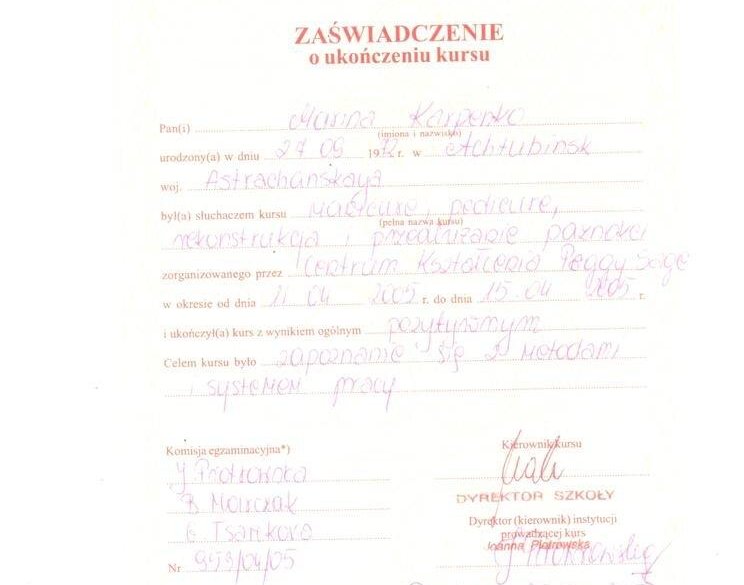 ZAŚWIADCZENIE
o ukończeniu kursu
Pan(i) Marina Karpenko
(imiona i nazwisko)
urodzony(a) w dniu 27 09 1972 r. w Achtubinsk
woj. Astrachanskaya
był(a) słuchaczem kursu manicure, pedicure,
(pełna nazwa kursu)
rekonstrukcja i przedłużanie paznokci
zorganizowanego przez Centrum Kształcenia Peggy Sage
w okresie od dnia 11 04 2005 r. do dnia 15.04 2005 r.
i ukończył(a) kurs z wynikiem ogólnym pozytywnym
Celem kursu było zapoznanie się z metodami
i systemem pracy
Komisja egzaminacyjna*)
Kierownik kursu
J Piotrowska
B Mourzak
DYREKTOR SZKOŁY
E Tsarikova
Dyrektor (kierownik) instytucji
prowadzącej kurs
Joanna Piotrowska
Nr 953/04/05